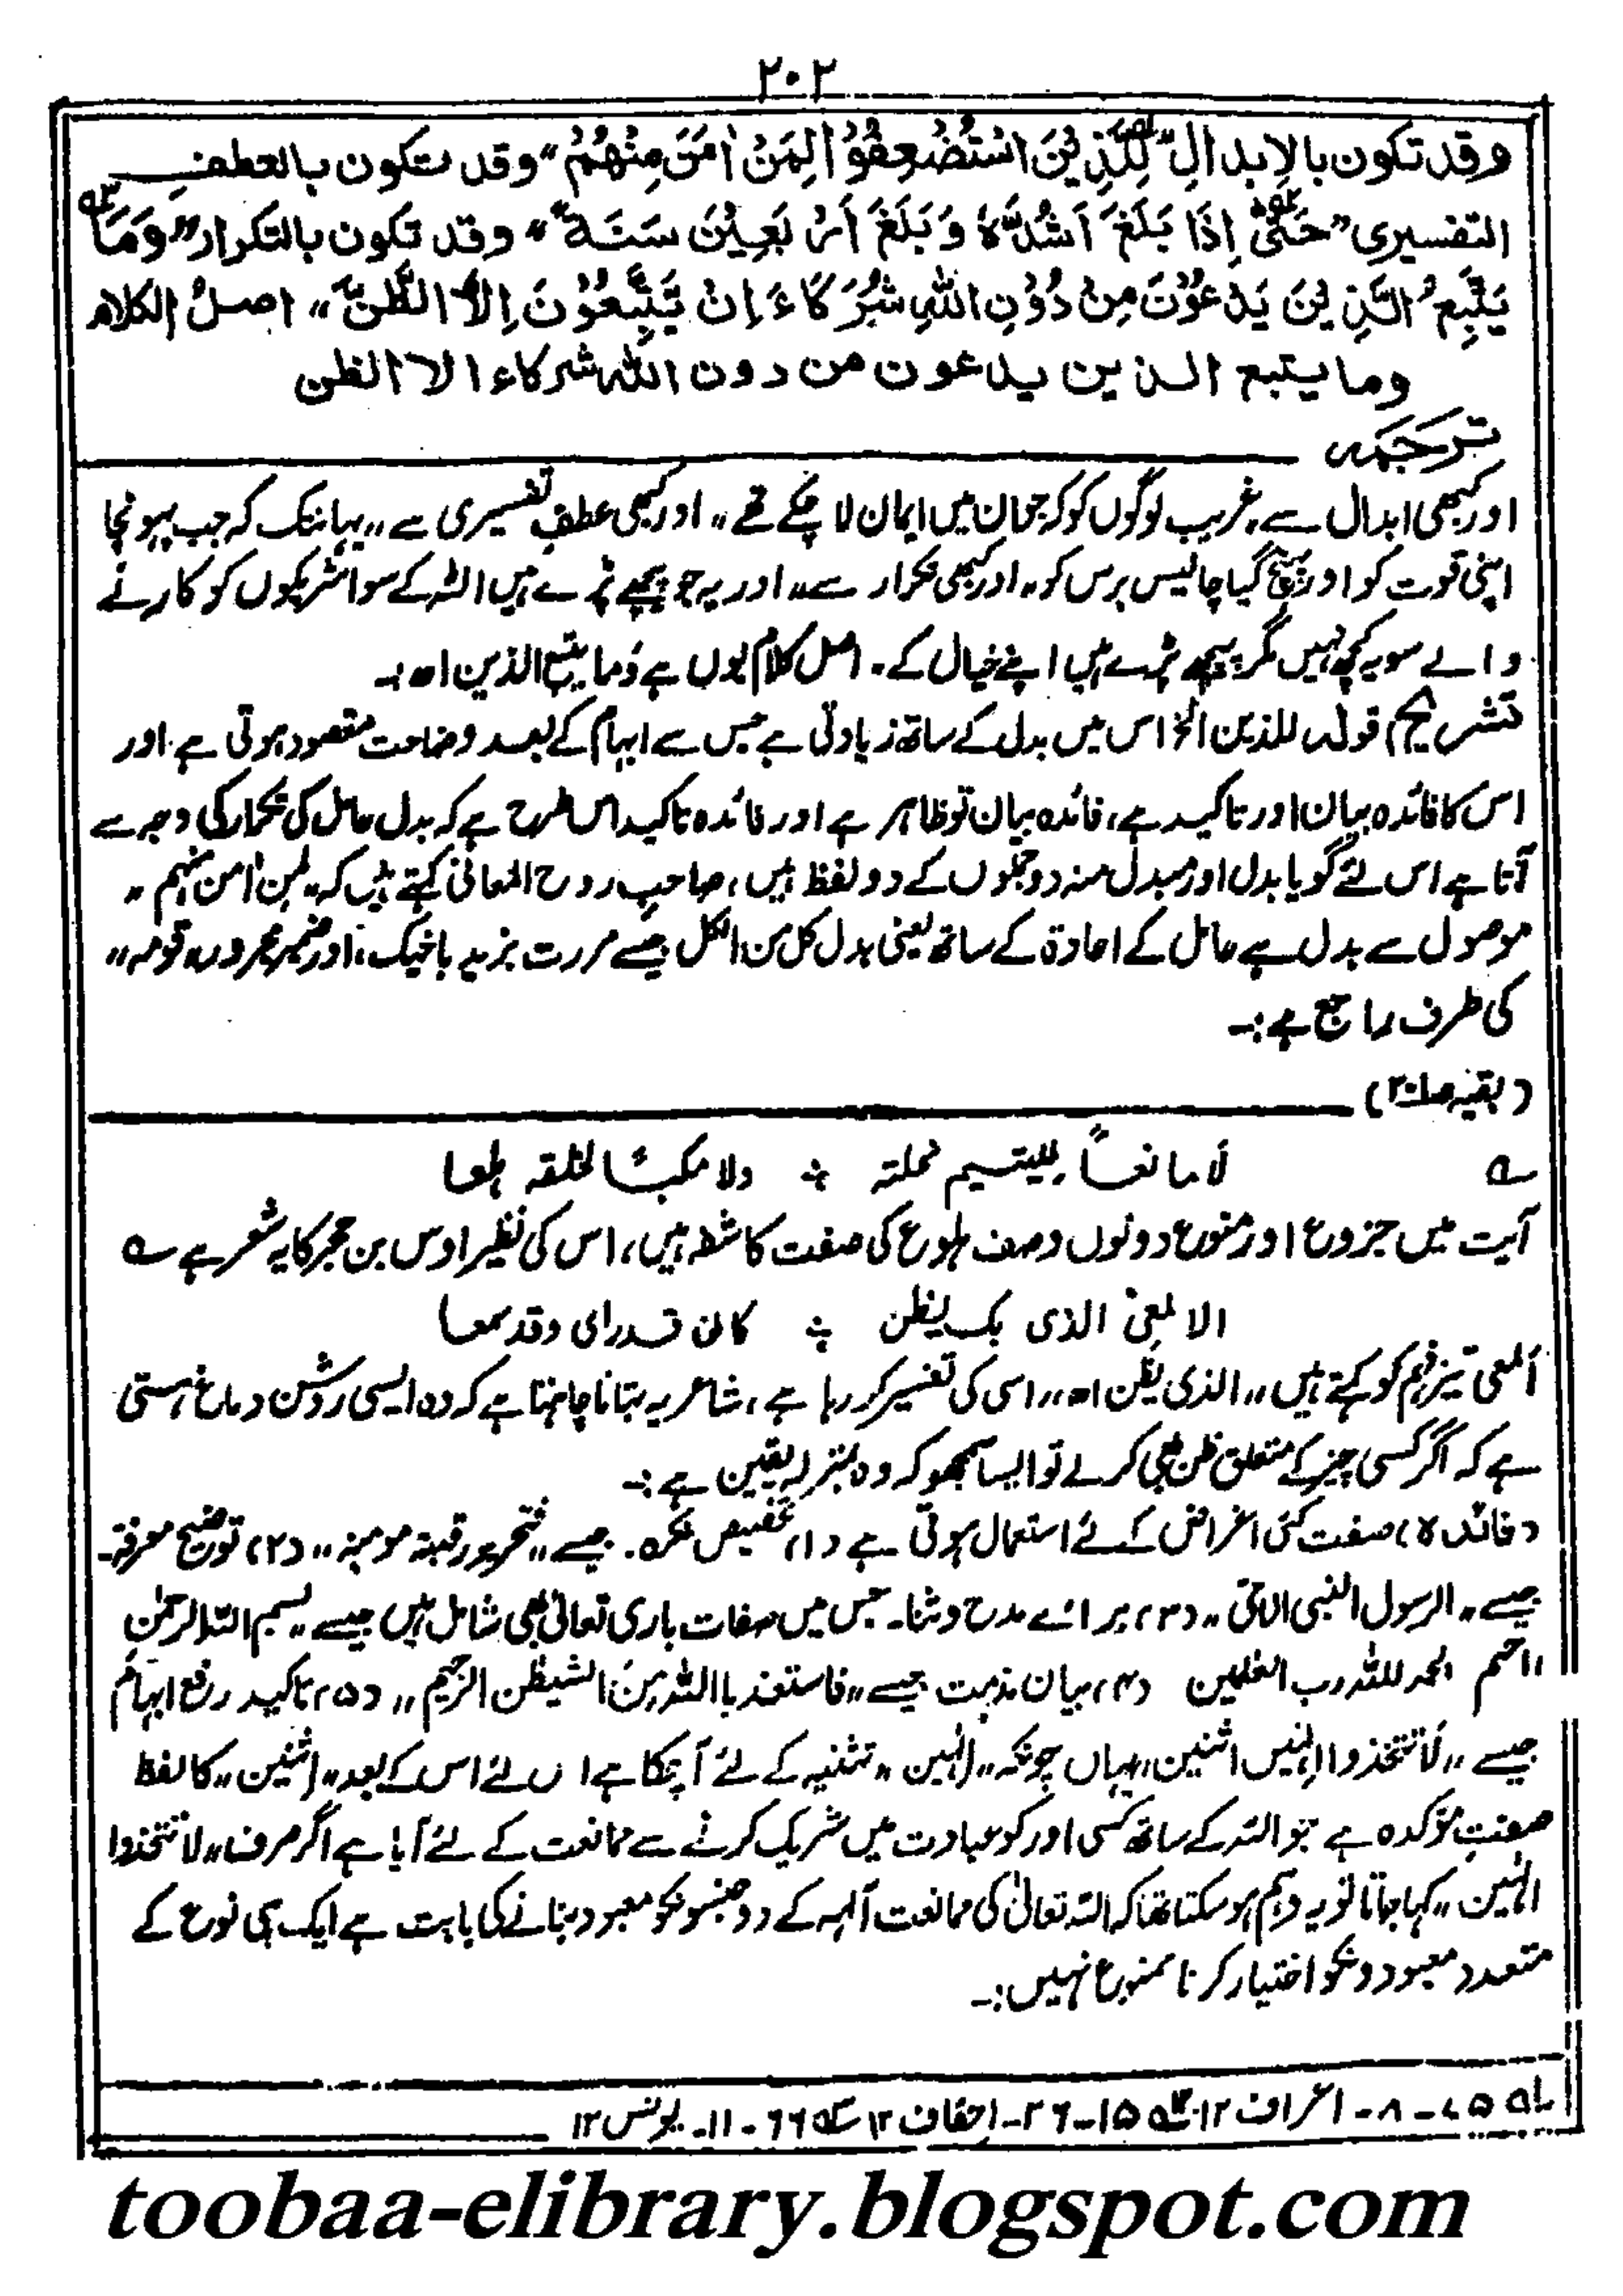 ۲۰۲
وقد تكون بالابدال "لِلَّذِيْنَ اسْتُضْعِفُوْا لِمَنْ اٰمَنَ مِنْهُمْ" وقد تكون بالعطف
التفسيرى "حَتّٰى اِذَا بَلَغَ اَشُدَّهٗ وَبَلَغَ اَرْبَعِيْنَ سَنَةً" وقد تكون بالتكرار "وَمَا
يَتَّبِعُ الَّذِيْنَ يَدْعُوْنَ مِنْ دُوْنِ اللّٰهِ شُرَكَاءَ اِنْ يَّتَّبِعُوْنَ اِلَّا الظَّنَّ" اصلُ الكلام
وما يتبع الذين يدعون من دون الله شركاء الا الظن
ترجمہ
اور کبھی ابدال سے "غریب لوگوں کو کہ جو ان میں ایمان لا چکے تھے" اور کبھی عطفِ تفسیری سے "یہانتک کہ جب پہونچا
اپنی قوت کو اور پہنچ گیا چالیس برس کو" اور کبھی تکرار سے "اور یہ جو پیچھے پڑے ہیں اللہ کے سوا شریکوں کو پکارنے
والے سو یہ کچھ نہیں مگر پیچھے پڑے ہیں اپنے خیال کے۔ اصل کلام یوں ہے وما یتبع الذین اھ :-
تشریح قولہ للذین الخ اس میں بدل کے ساتھ زیادتی ہے جس سے ابہام کے بعد وضاحت مقصود ہوتی ہے اور
اس کا فائدہ بیان اور تاکید ہے، فائدہ بیان تو ظاہر ہے اور فائدہ تاکید اس طرح ہے کہ بدل عامل کی تکرار کی وجہ سے
آتا ہے اس لئے گویا بدل اور مبدل منہ دو جملوں کے دو لفظ ہیں، صاحبِ روح المعانی کہتے ہیں کہ "لمن اٰمن منہم"
موصول سے بدل ہے عامل کے اعادۃ کے ساتھ یعنی بدل کل من الکل جیسے مررت بزید باخیک، اور ضمیر مجرور "قومہ"
کی طرف راجع ہے :-
(بقیہ ص۲۰۱)
؎ لا مانعاً للیتیم نحلتہ ÷ ولا مکبًا لخلقہ ہلعا
آیت میں جزوع اور منوع دونوں وصف ہلوع کی صفت کاشفہ ہیں، اس کی نظیر اوس بن حجر کا یہ شعر ہے ؎
الالمعیّ الذی بک یظن ÷ کان قد رای وقد سمعا
المعی تیز فہم کو کہتے ہیں "الذی یظن اھ" اسی کی تفسیر کر رہا ہے، شاعر یہ بتانا چاہتا ہے کہ وہ ایسی روشن دماغ ہستی
ہے کہ اگر کسی چیز کے متعلق ظن بھی کر لے تو ایسا سمجھو کہ وہ بمنزلہ یقین ہے :-
(فائدہ) صفت کئی اغراض کے لئے استعمال ہوتی ہے (۱) تخصیص نکرہ۔ جیسے "فتحریر رقبۃ مومنۃ" (۲) توضیح معرفۃ۔
جیسے "الرسول النبی الامّی" (۳) برائے مدح و ثنا۔ جس میں صفات باری تعالیٰ بھی شامل ہیں جیسے "بسم اللہ الرحمٰن
الرحیم الحمد للہ رب العٰلمین (۴) بیان مذمت جیسے "فاستعذ باللہ مِنَ الشیطٰن الرجیم" (۵) تاکید رفع ابہام
جیسے "لَا تتخذوا اِلٰہین اثنین" یہاں چونکہ "الٰہین" تثنیہ کے لئے آ چکا ہے اس لئے اس کے بعد "اثنین" کا لفظ
صفتِ مؤکدہ ہے جو اللہ کے ساتھ کسی اور کو عبادت میں شریک کرنے سے ممانعت کے لئے آیا ہے اگر صرف "لا تتخذوا
الٰہین" کہا جاتا تو یہ وہم ہو سکتا تھا کہ اللہ تعالیٰ کی ممانعت آلہہ کے دو جنسونکو معبود بنانے کی بابت ہے ایک ہی نوع کے
متعدد معبودونکو اختیار کرنا ممنوع نہیں :-
۷۵ - ۸ - اعراف ۱۲ ۱۵ - ۲۶ - احقاف ۱۲ ۶۶ - ۱۱ - یونس ۱۲
toobaa-elibrary.blogspot.com